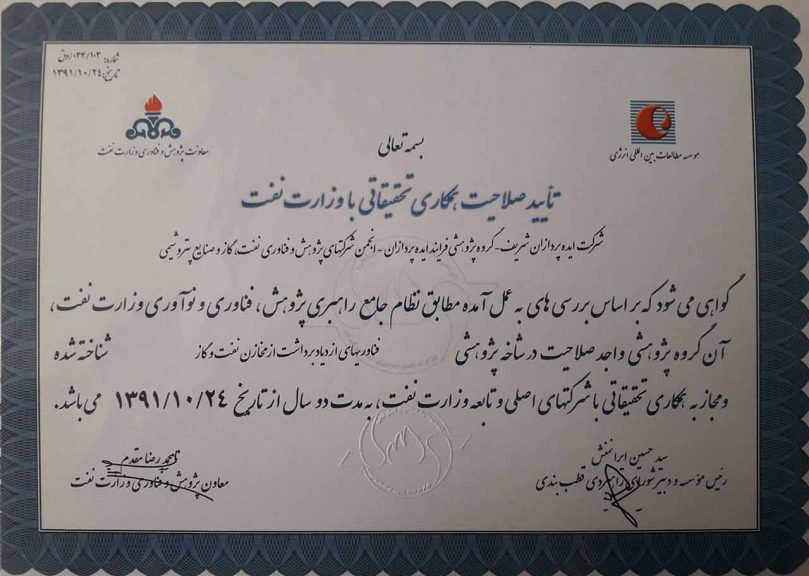 شماره: ۰۳۴/۱۰۳/دق
تاریخ: ۱۳۹۱/۱۰/۲۴
معاونت پژوهش و فناوری وزارت نفت
موسسه مطالعات بین المللی انرژی
بسمه تعالی
تأیید صلاحیت همکاری تحقیقاتی با وزارت نفت
شرکت ایده پردازان شریف - گروه پژوهشی فرایند ایده پردازان - انجمن شرکتهای پژوهش و فناوری نفت، گاز و صنایع پتروشیمی
گواهی می شود که بر اساس بررسی های به عمل آمده مطابق نظام جامع راهبری پژوهش، فناوری و نوآوری وزارت نفت،
آن گروه پژوهشی واجد صلاحیت در شاخه پژوهشی فناوریهای ازدیاد برداشت از مخازن نفت و گاز شناخته شده
و مجاز به همکاری تحقیقاتی با شرکتهای اصلی و تابعه وزارت نفت، به مدت دو سال از تاریخ ۱۳۹۱/۱۰/۲۴ می باشد.
سید حسین ایرانمنش
رئیس مؤسسه و دبیر شورای راهبردی قطب بندی
محمدرضا مقدم
معاون پژوهش و فناوری وزارت نفت